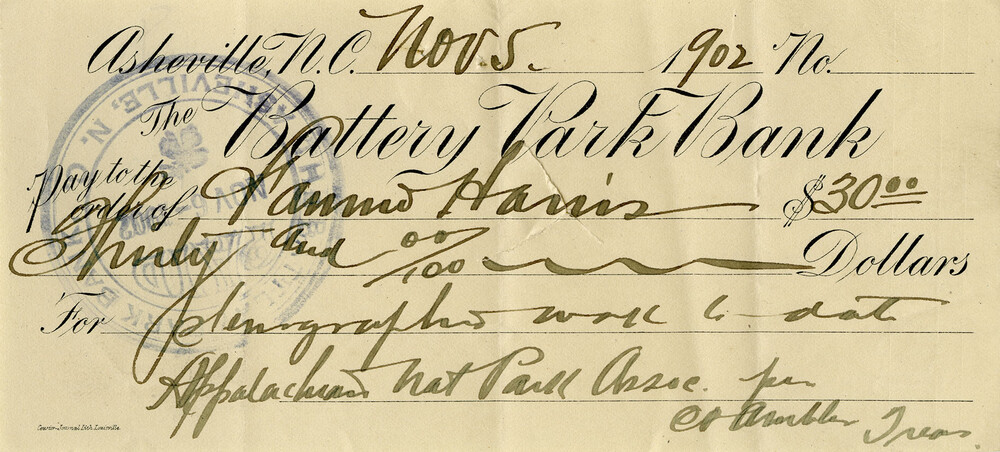 Asheville, N.C. Nov. 5. 1902 No.
The Battery Park Bank
Pay to the order of Fannie Harris $30.00
Thirty and 00/100 Dollars
For stenographic work to date
Appalachian Nat Park Assoc. per
CP Ambler Treas.
Courier-Journal Lith. Louisville.
ASHEVILLE, N. C.